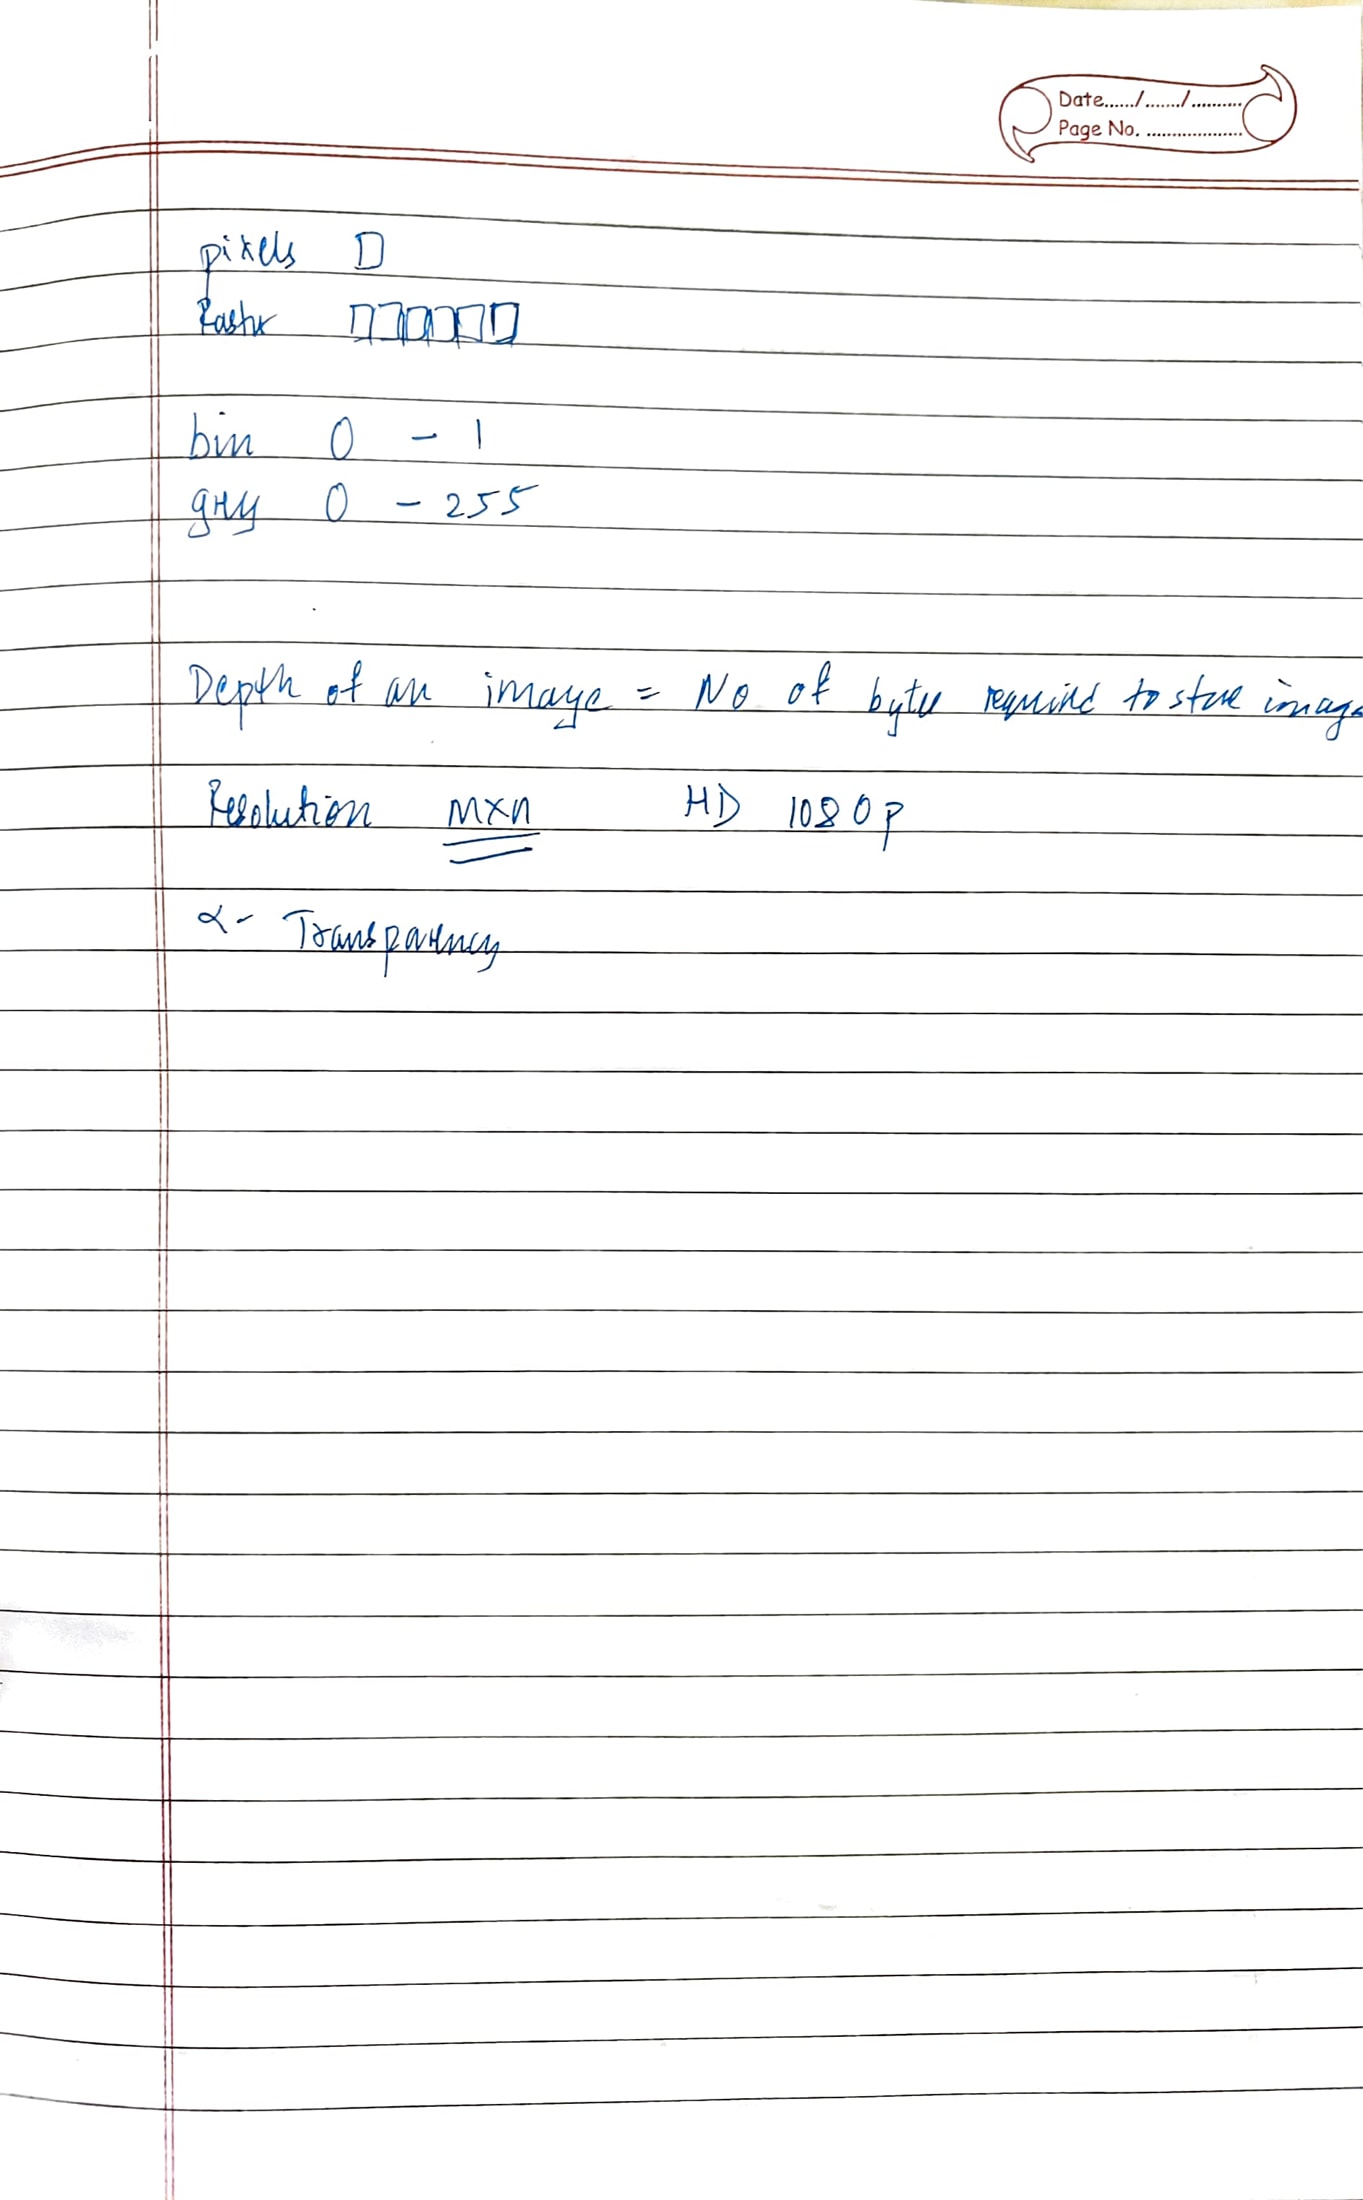 Date....../......./..........
Page No. ...................
pixels
Raster
bin 0 - 1
grey 0 - 255
Depth of an image = No of bytes required to store image
Resolution mxn HD 1080p
α- Transparency